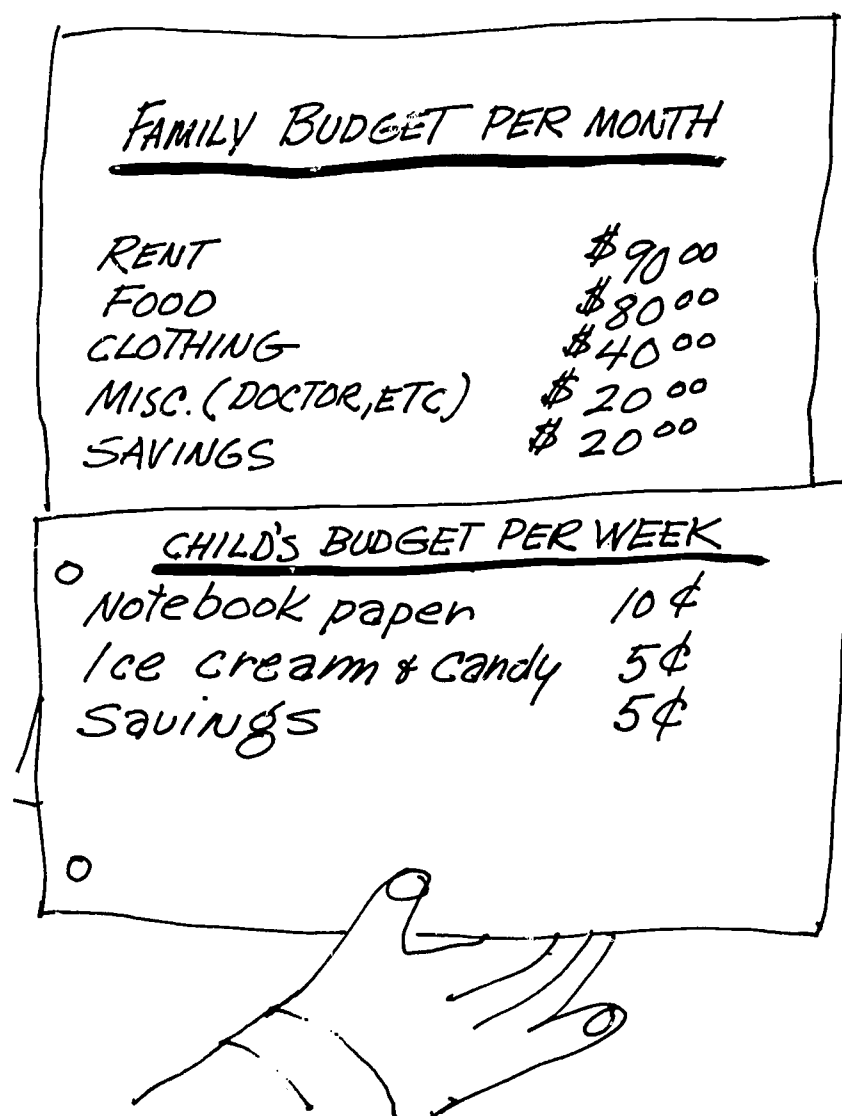 FAMILY BUDGET PER MONTH
RENT $90.00
FOOD $80.00
CLOTHING $40.00
MISC. (DOCTOR, ETC) $20.00
SAVINGS $20.00
CHILD'S BUDGET PER WEEK
Notebook paper 10¢
Ice cream & candy 5¢
Savings 5¢